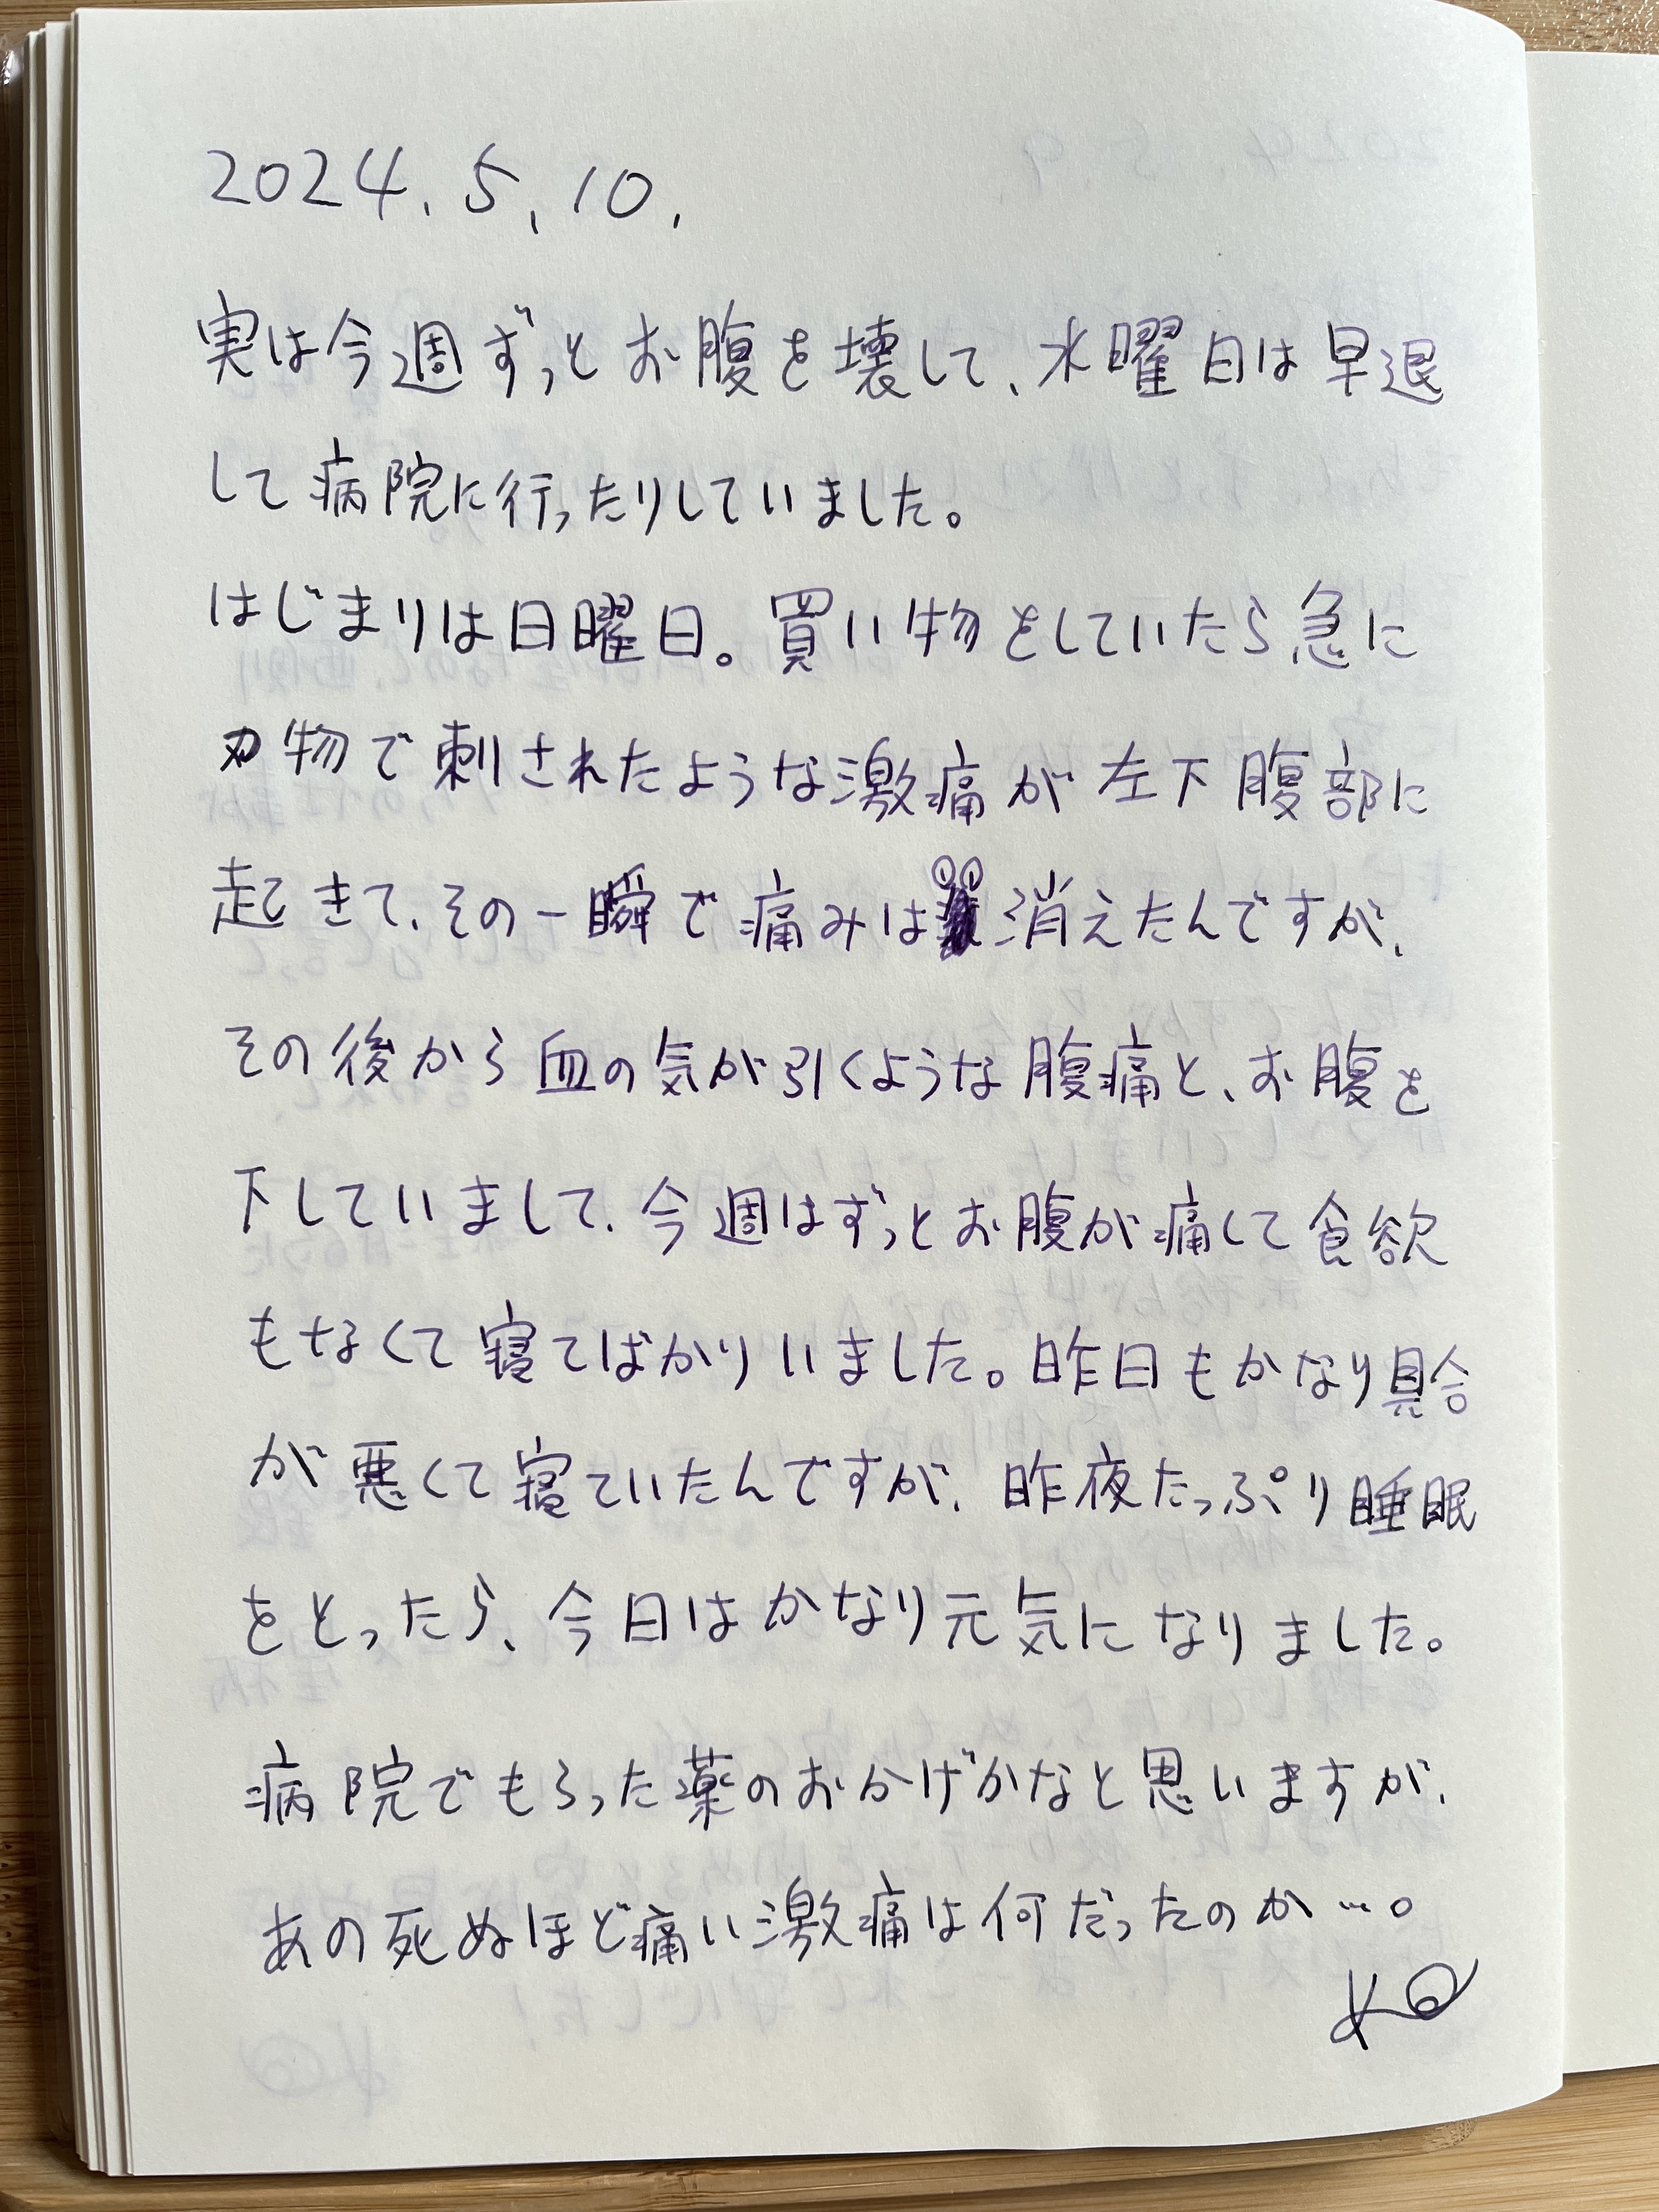 2024.5.10.
実は今週ずっとお腹を壊して、水曜日は早退
して病院に行ったりしていました。
はじまりは日曜日。買い物をしていたら急に
刃物で刺されたような激痛が左下腹部に
起きて、その一瞬で痛みは消えたんですが、
その後から血の気が引くような腹痛と、お腹を
下していまして、今週はずっとお腹が痛くて食欲
もなくて寝てばかりいました。昨日もかなり具合
が悪くて寝ていたんですが、昨夜たっぷり睡眠
をとったら、今日はかなり元気になりました。
病院でもらった薬のおかげかなと思いますが、
あの死ぬほど痛い激痛は何だったのか…。